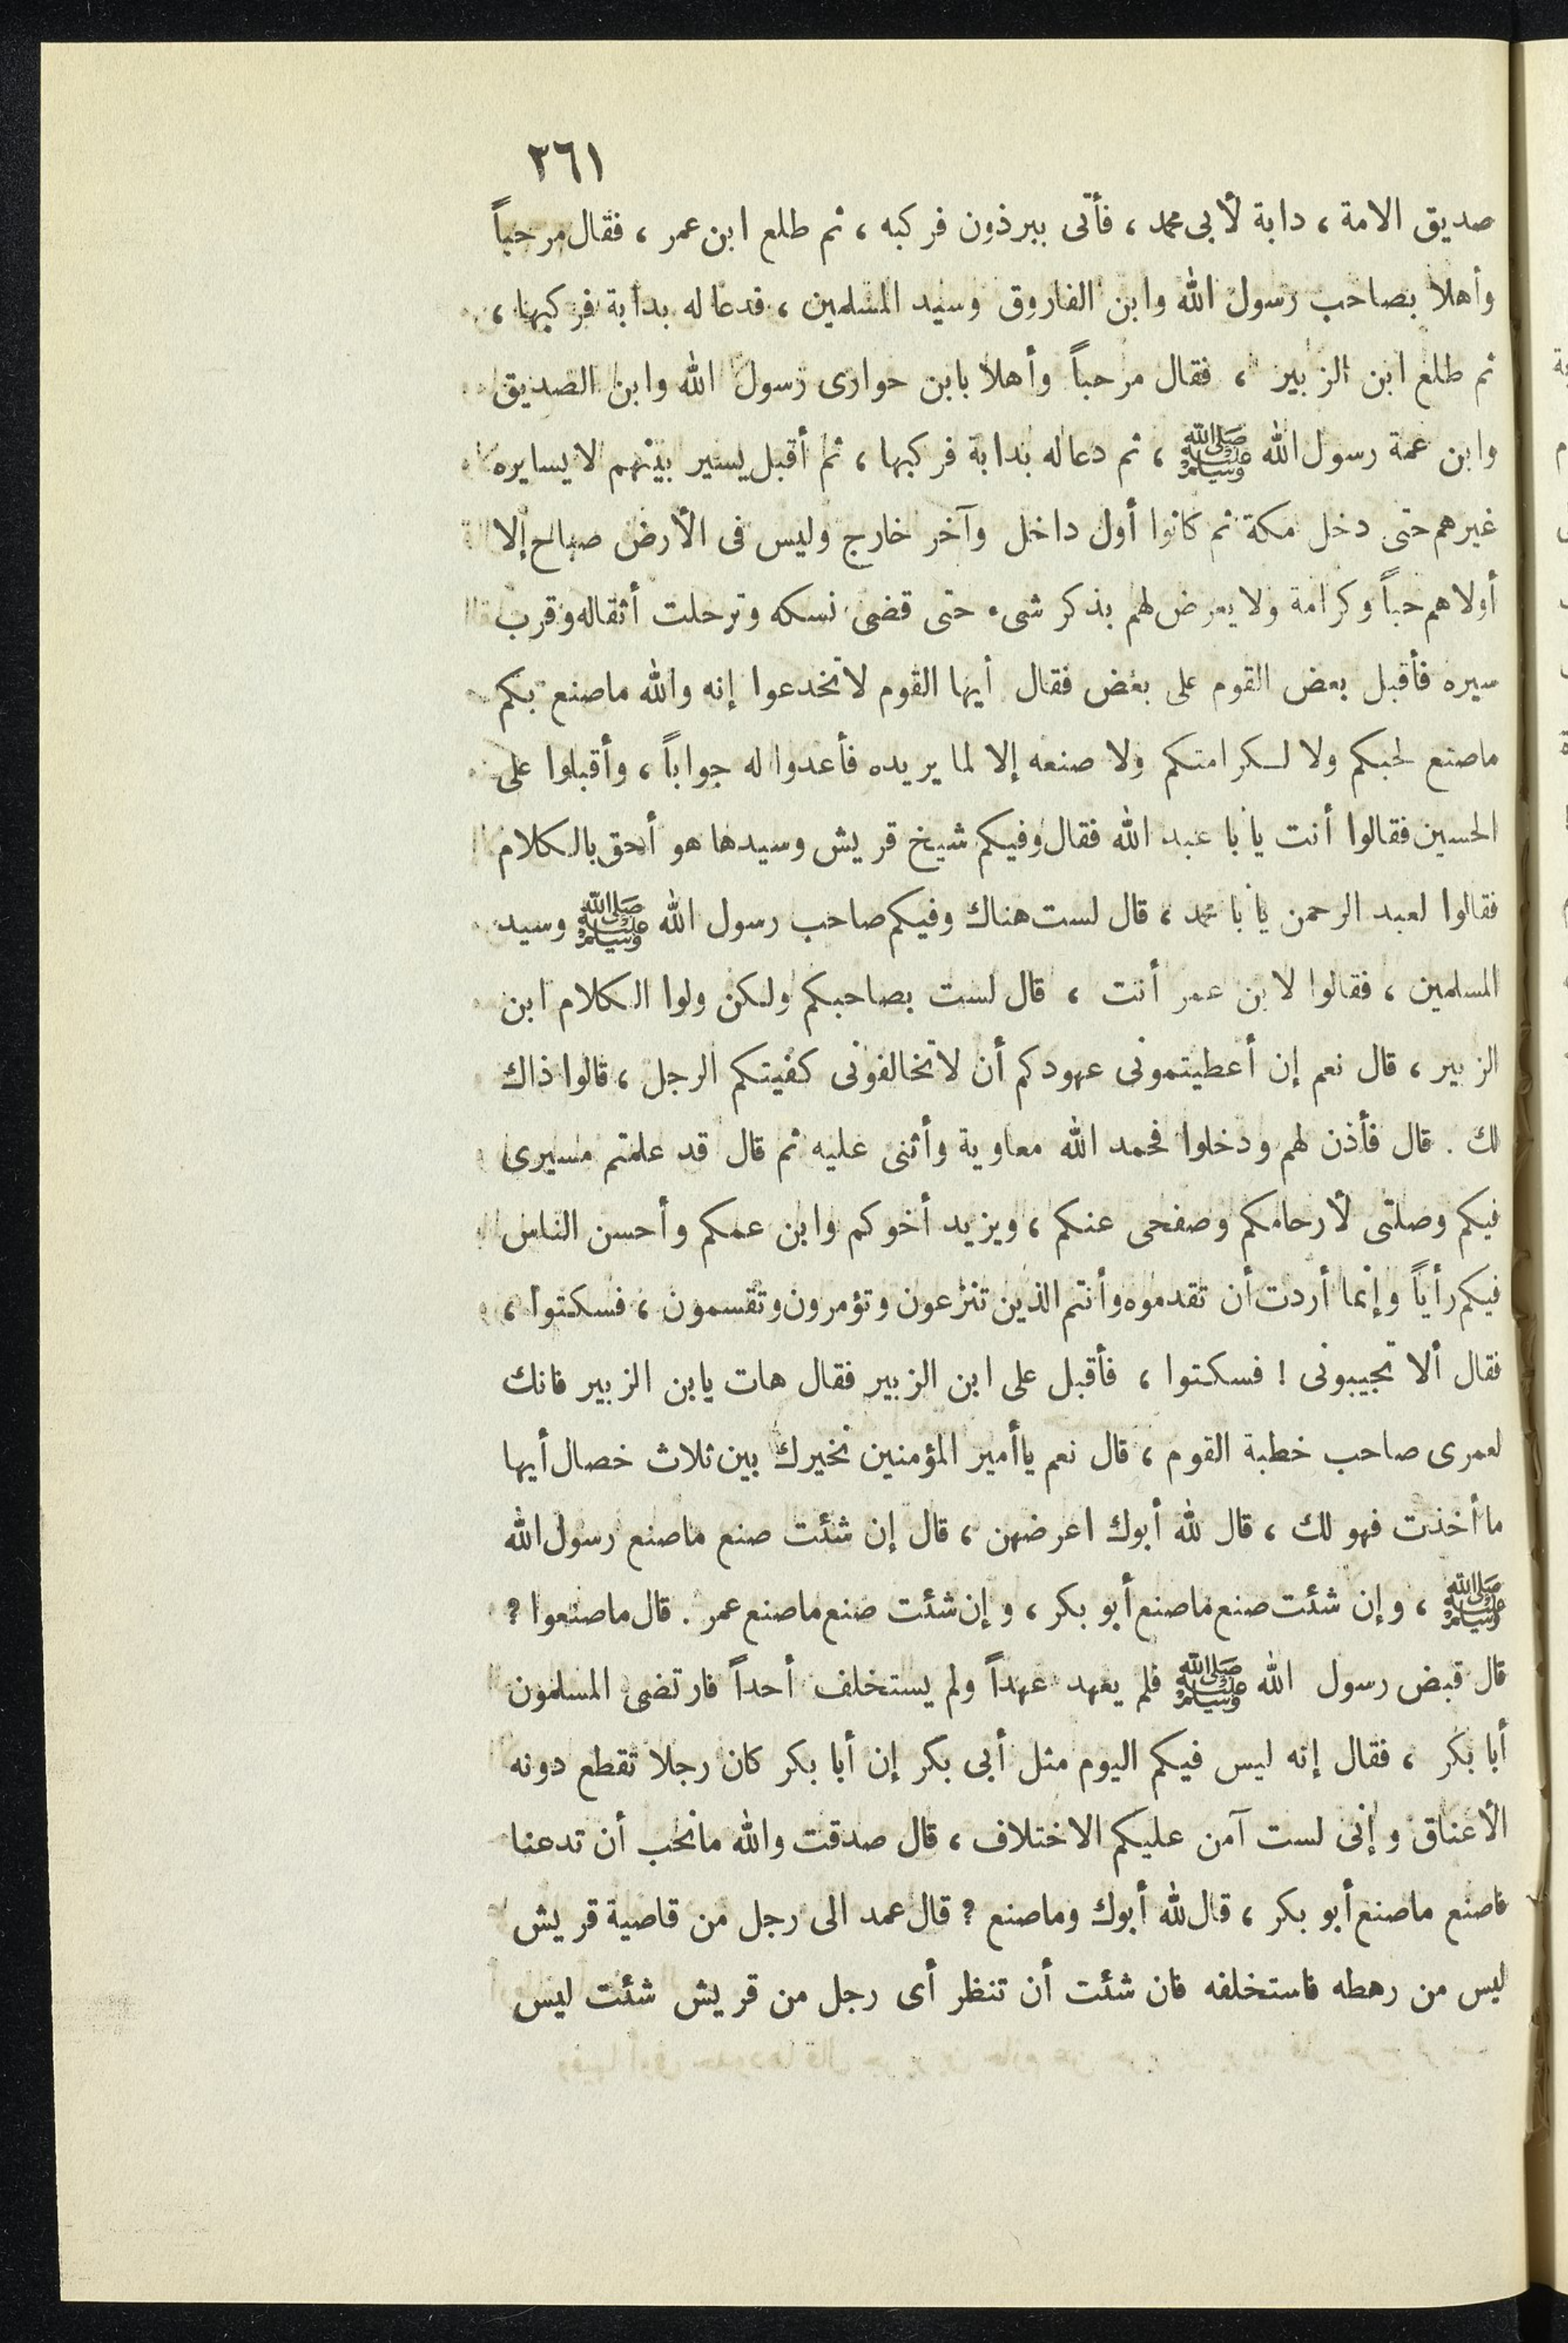 ٢٦١
صديق الامة ، دابة لأبى محمد ، فأتى ببرذون فركبه ، ثم طلع ابن عمر ، فقال مرحباً
وأهلا بصاحب رسول الله وابن الفاروق وسيد المسلمين ، فدعا له بدابة فركبها ،
ثم طلع ابن الزبير ، فقال مرحباً وأهلا بابن حوارى رسول الله وابن الصديق
وابن عمة رسول الله ﷺ ، ثم دعا له بدابة فركبها ، ثم أقبل يسير بينهم لا يسايره
غيرهم حتى دخل مكة ثم كانوا أول داخل وآخر خارج وليس فى الأرض صباح إلا
أولاهم حباً وكرامة ولا يعرض لهم بذكر شىء حتى قضى نسكه وترحلت أثقاله وقرب
سيره فأقبل بعض القوم على بعض فقال أيها القوم لا تخدعوا إنه والله ماصنع بكم
ماصنع لحبكم ولا لكرامتكم ولا صنعه إلا لما يريده فأعدوا له جواباً ، وأقبلوا على
الحسين فقالوا أنت يا با عبد الله فقال وفيكم شيخ قريش وسيدها هو أحق بالكلام
فقالوا لعبد الرحمن يا با محمد ، قال لست هناك وفيكم صاحب رسول الله ﷺ وسيد
المسلمين ، فقالوا لابن عمر أنت ، قال لست بصاحبكم ولكن ولوا الكلام ابن
الزبير ، قال نعم إن أعطيتمونى عهودكم أن لاتخالفونى كفيتكم الرجل ، قالوا ذاك
لك . قال فأذن لهم ودخلوا فحمد الله معاوية وأثنى عليه ثم قال قد علمتم مسيرى
فيكم وصلتى لأرحامكم وصفحى عنكم ، ويزيد أخوكم وابن عمكم وأحسن الناس
فيكم رأياً وإنما أردت أن تقدموه وأنتم الذين تنزعون وتؤمرون وتقسمون ، فسكتوا ،
فقال ألا تجيبونى ! فسكتوا ، فأقبل على ابن الزبير فقال هات يابن الزبير فانك
لعمرى صاحب خطبة القوم ، قال نعم ياأمير المؤمنين نخيرك بين ثلاث خصال أيها
ماأخذت فهو لك ، قال لله أبوك اعرضهن ، قال إن شئت صنع ماصنع رسول الله
ﷺ ، وإن شئت صنع ماصنع أبو بكر ، وإن شئت صنع ماصنع عمر . قال ماصنعوا ؟
قال قبض رسول الله ﷺ فلم يعهد عهداً ولم يستخلف أحداً فارتضى المسلمون
أبا بكر ، فقال إنه ليس فيكم اليوم مثل أبى بكر إن أبا بكر كان رجلا تقطع دونه
الأعناق وإنى لست آمن عليكم الاختلاف ، قال صدقت والله مانحب أن تدعنا
فاصنع ماصنع أبو بكر ، قال لله أبوك وماصنع ؟ قال عمد الى رجل من قاصية قريش
ليس من رهطه فاستخلفه فان شئت أن تنظر أى رجل من قريش شئت ليس